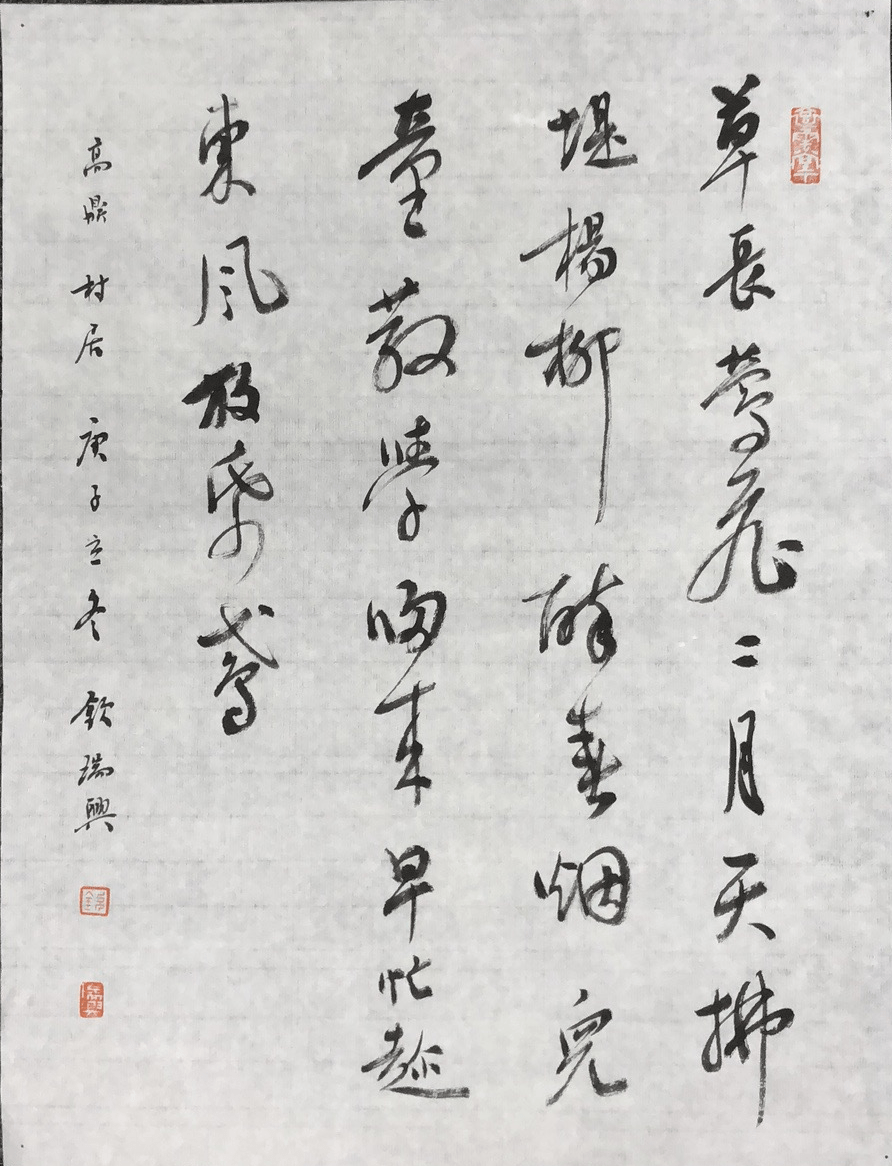 草長鶯飛二月天拂
堤楊柳醉春烟兒
童散學歸來早忙趁
東風放紙鳶
高鼎 村居 庚子立冬 欽瑞興